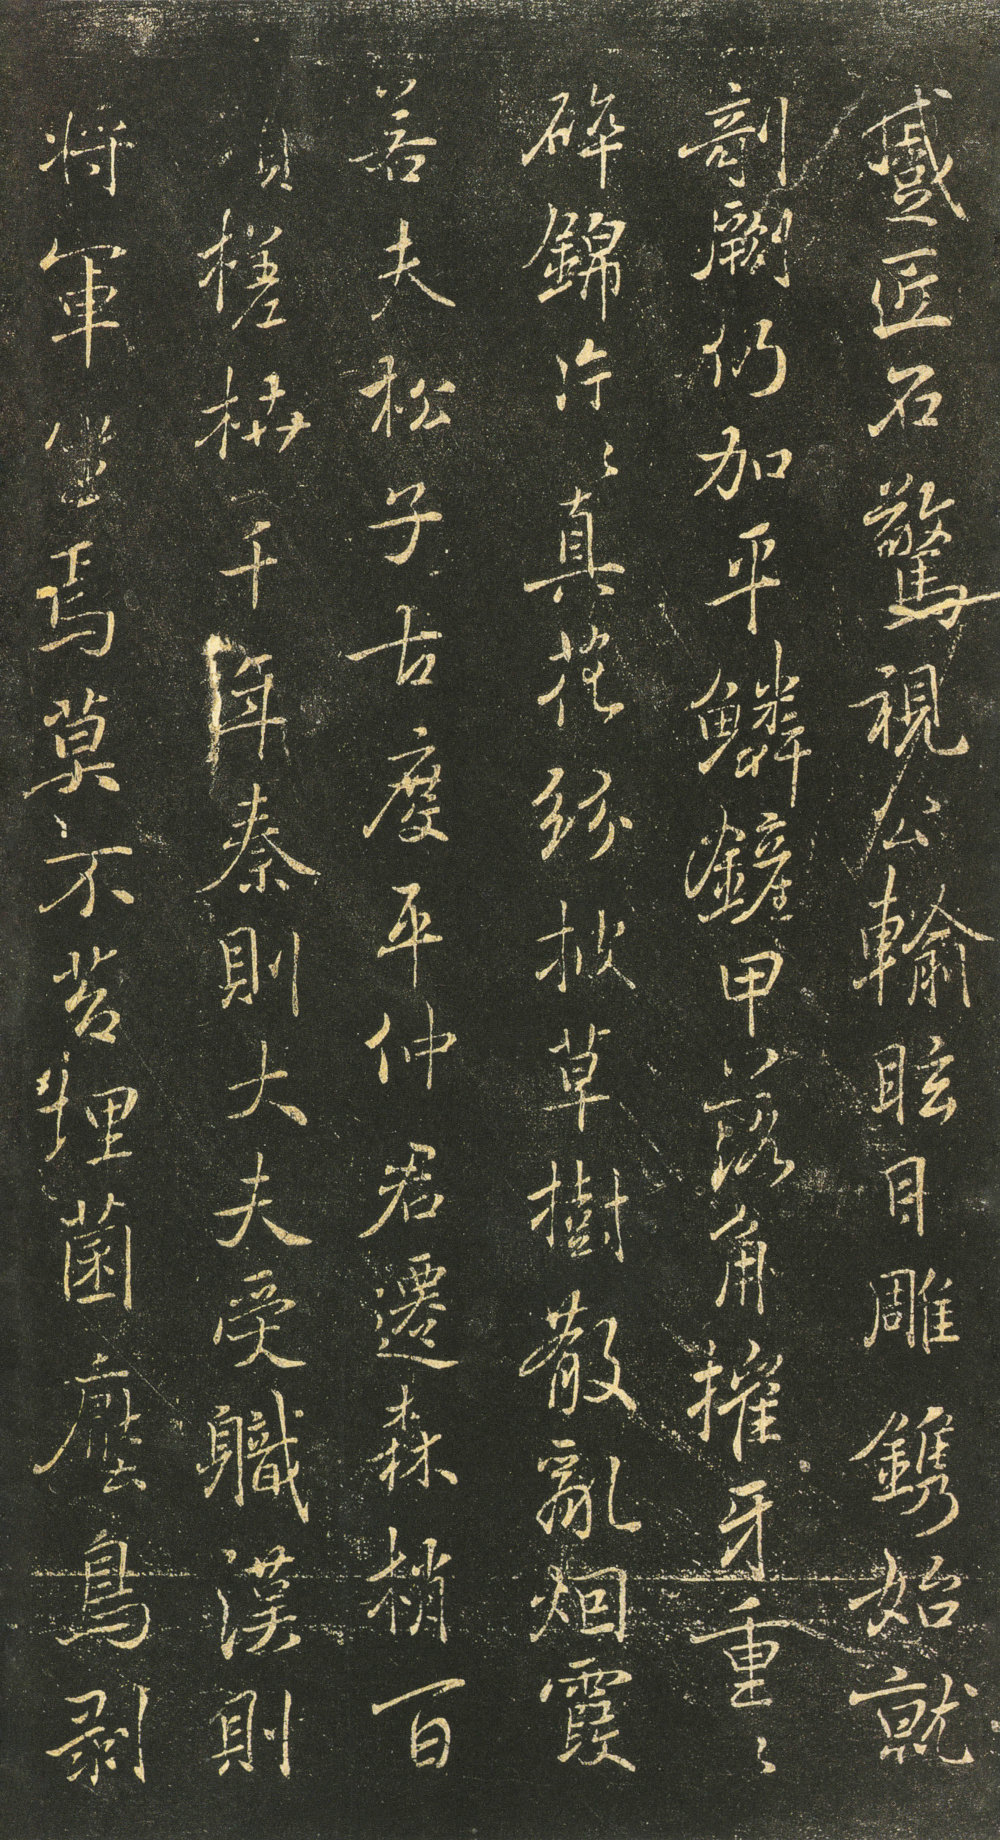 蹙匠石驚視公輸眩目雕鐫始就
剞劂仍加平鱗鏟甲落角摧牙重〻
碎錦片〻真花紛披草樹散亂烟霞
若夫松子古度平仲君遷森梢百
頃槎枿千年秦則大夫受職漢則
將軍坐焉莫不苔埋菌壓鳥剥